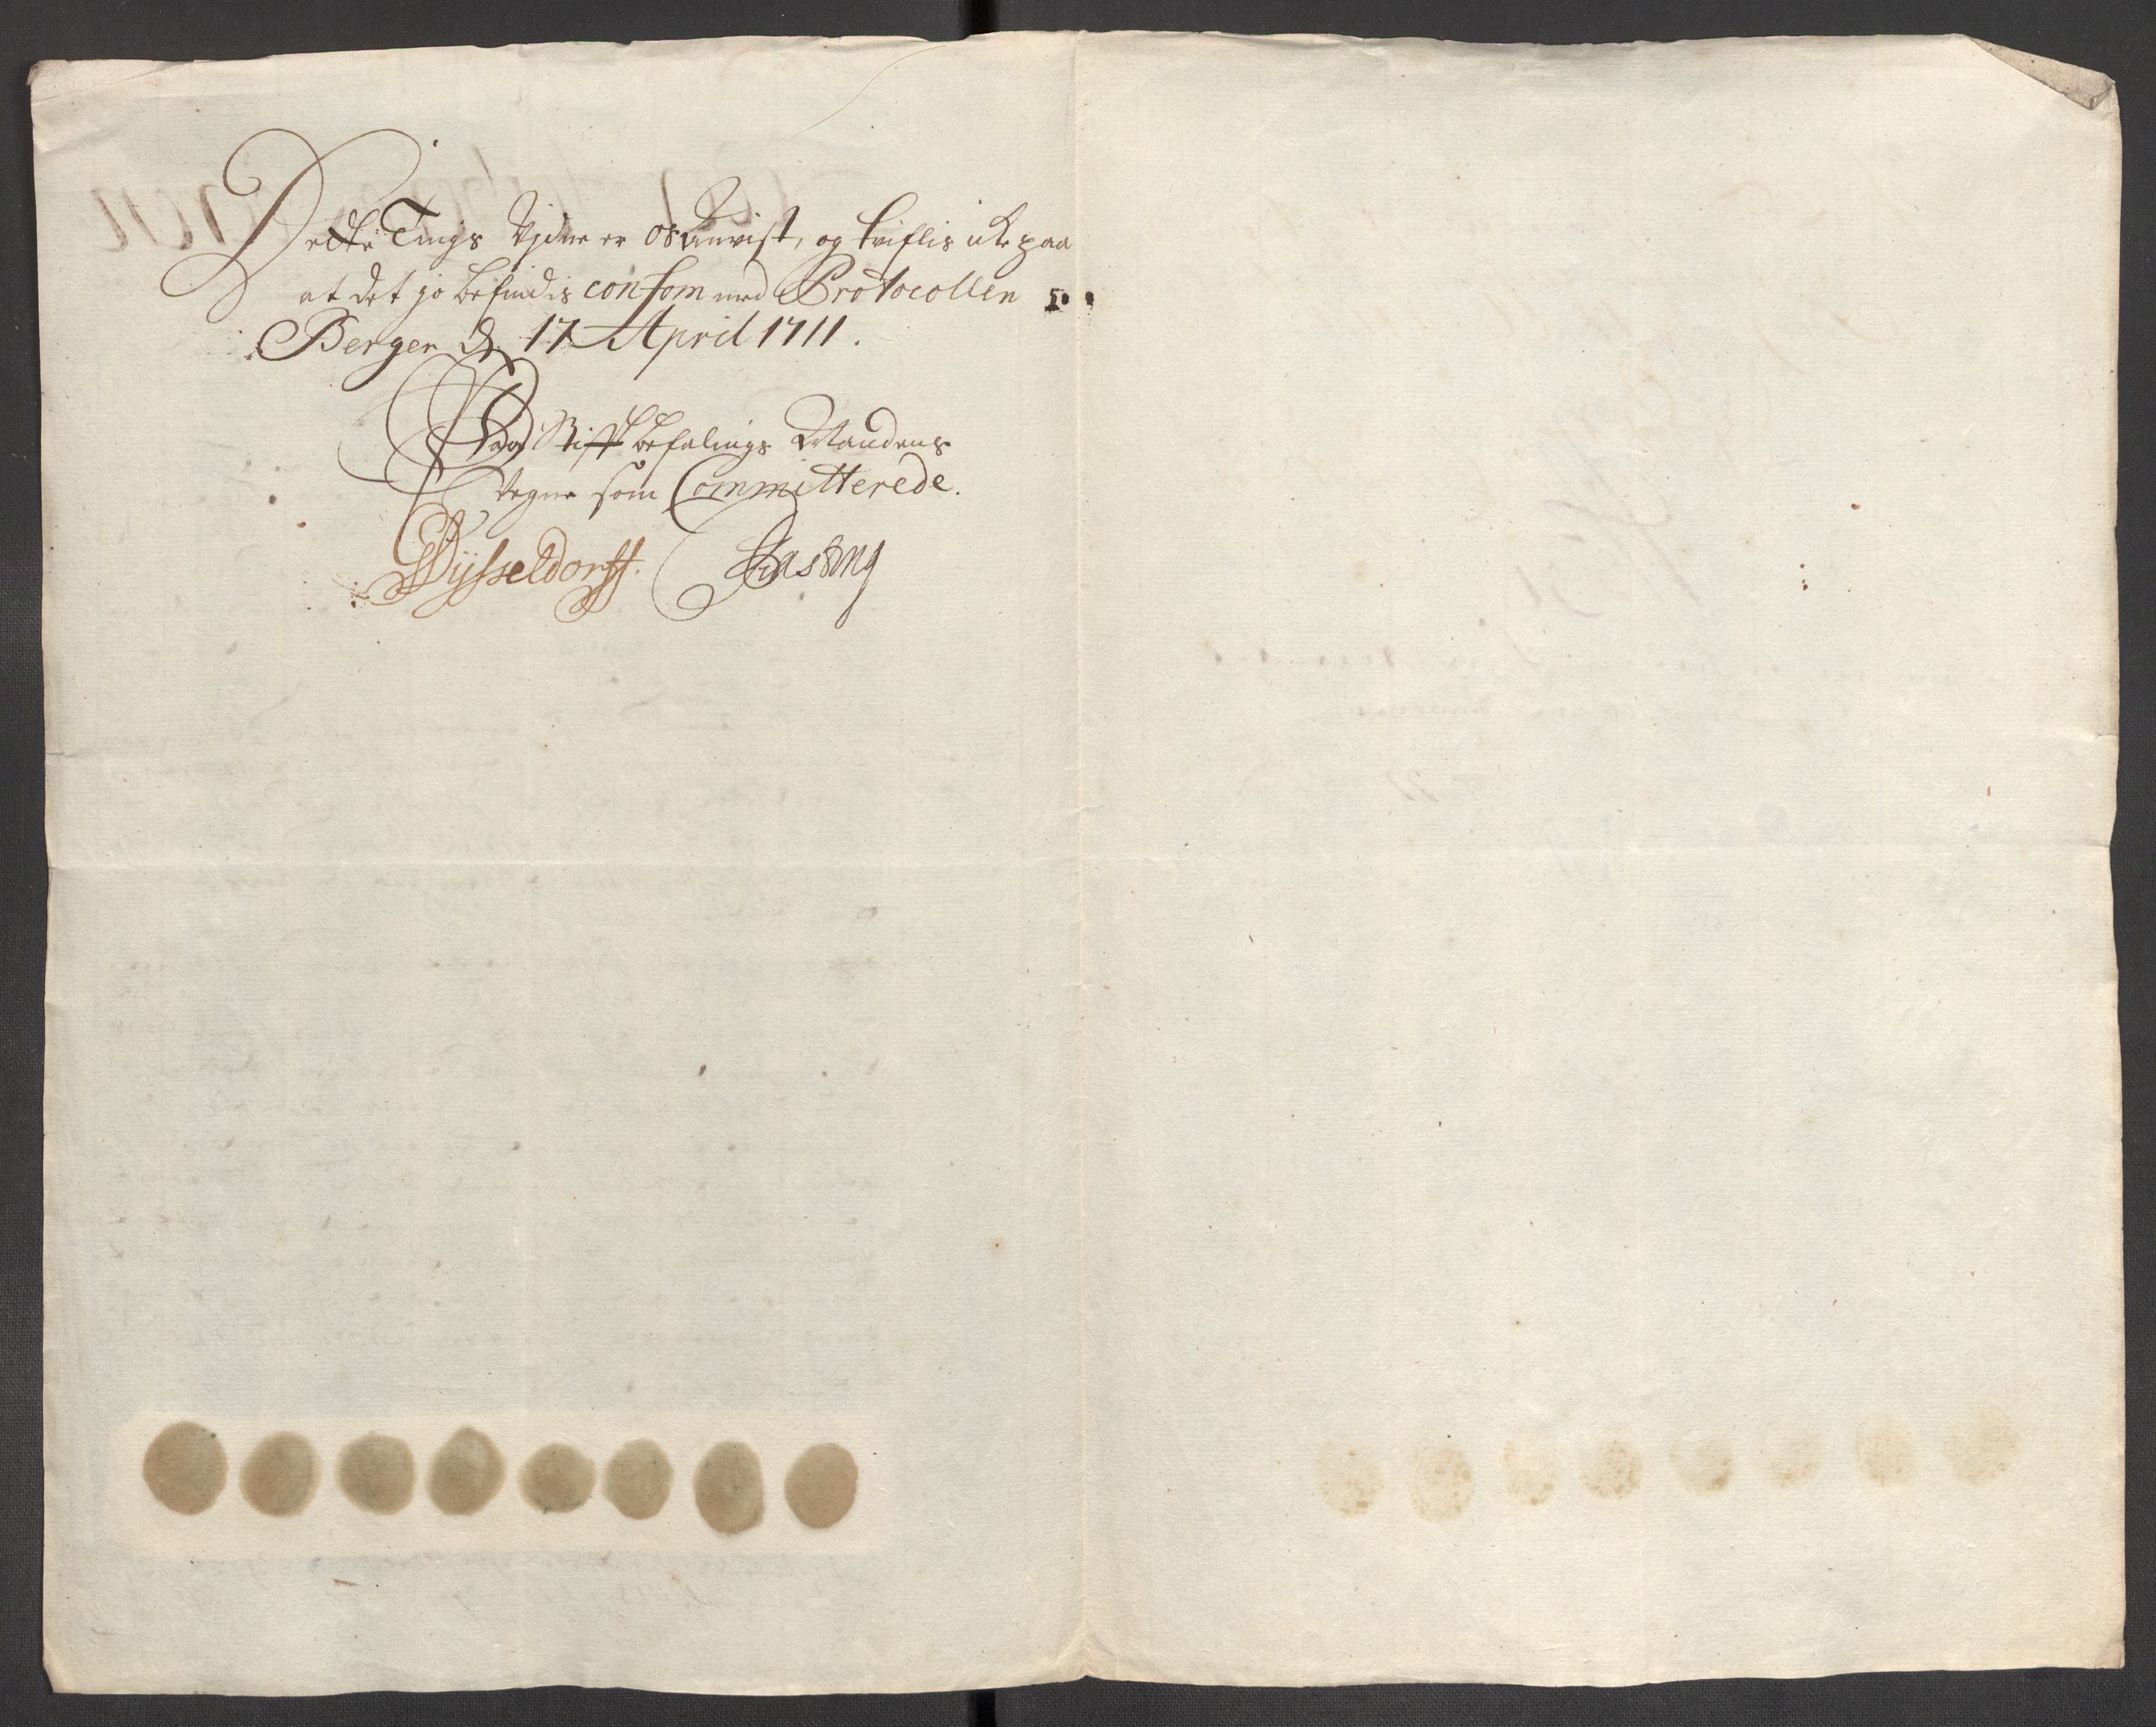 Dette Tings Vidne er os anvist, og tviflis icke paa
at det jo befindis conform med Protocollen
Bergen d. 17 April 1711.
Paa Stiftbefalings Mandens
Vegne som Committerede.
Dÿsseldorff.